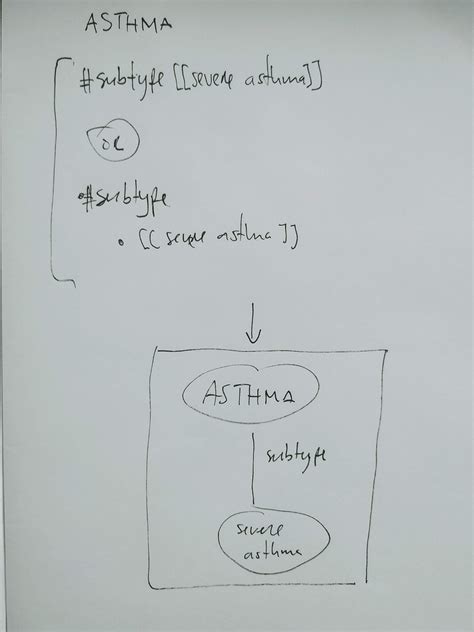 ASTHMA
#subtype [[severe asthma]]
or
#subtype
• [[severe asthma]]
ASTHMA
subtype
severe
asthma